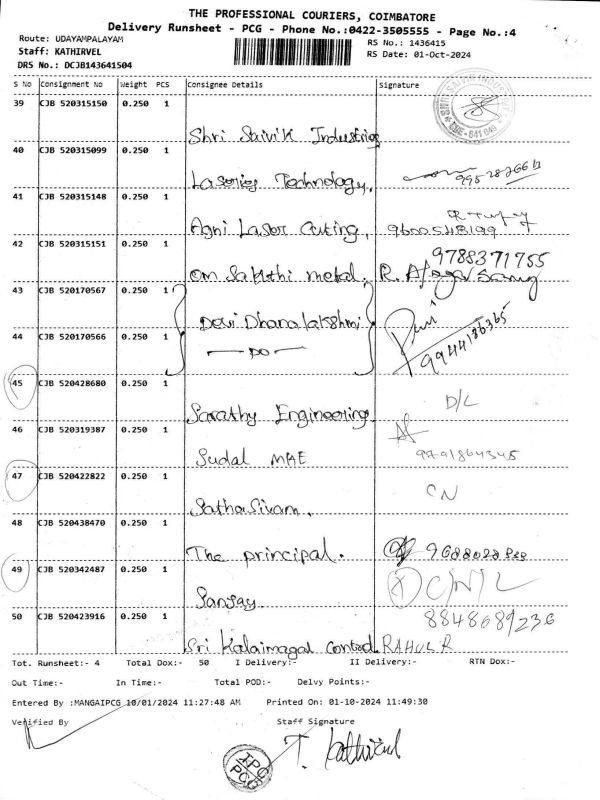 THE PROFESSIONAL COURIERS, COIMBATORE
Delivery Runsheet - PCG - Phone No.:0422-3505555 - Page No.:4
Route: UDAYAMPALAYAM RS No.: 1436415
Staff: KATHIRVEL RS Date: 01-Oct-2024
DRS No.: DCJB143641504
S No Consignment No Weight PCS Consignee Details Signature
39 CJB 520315150 0.250 1
Shri Saivik Industries
40 CJB 520315099 0.250 1
Technology.
41 CJB 520315148 0.250 1
Agni Laser Cuting, 9600548199
42 CJB 520315151 0.250 1 9788371755
om Sakthi metal. R.
43 CJB 520170567 0.250 1
Devi Dhanalakshmi
44 CJB 520170566 0.250 1
— DO — 9944186365
45 CJB 520428680 0.250 1
Sarathy Engineering. D/L
46 CJB 520319387 0.250 1
Sudal MAE
47 CJB 520422822 0.250 1
Sathasivam. CN
48 CJB 520438470 0.250 1
The principal.
49 CJB 520342487 0.250 1
Sanjay
50 CJB 520423916 0.250 1 8848689236
Sri Kalaimagal RAHUL R
Tot. Runsheet:- 4 Total Dox:- 50 I Delivery:- II Delivery:- RTN Dox:-
Out Time:- In Time:- Total POD:- Delvy Points:-
Entered By :MANGAIPCG 10/01/2024 11:27:48 AM Printed On: 01-10-2024 11:49:30
Verified By Staff Signature
TPC PCG T. Kathirvel